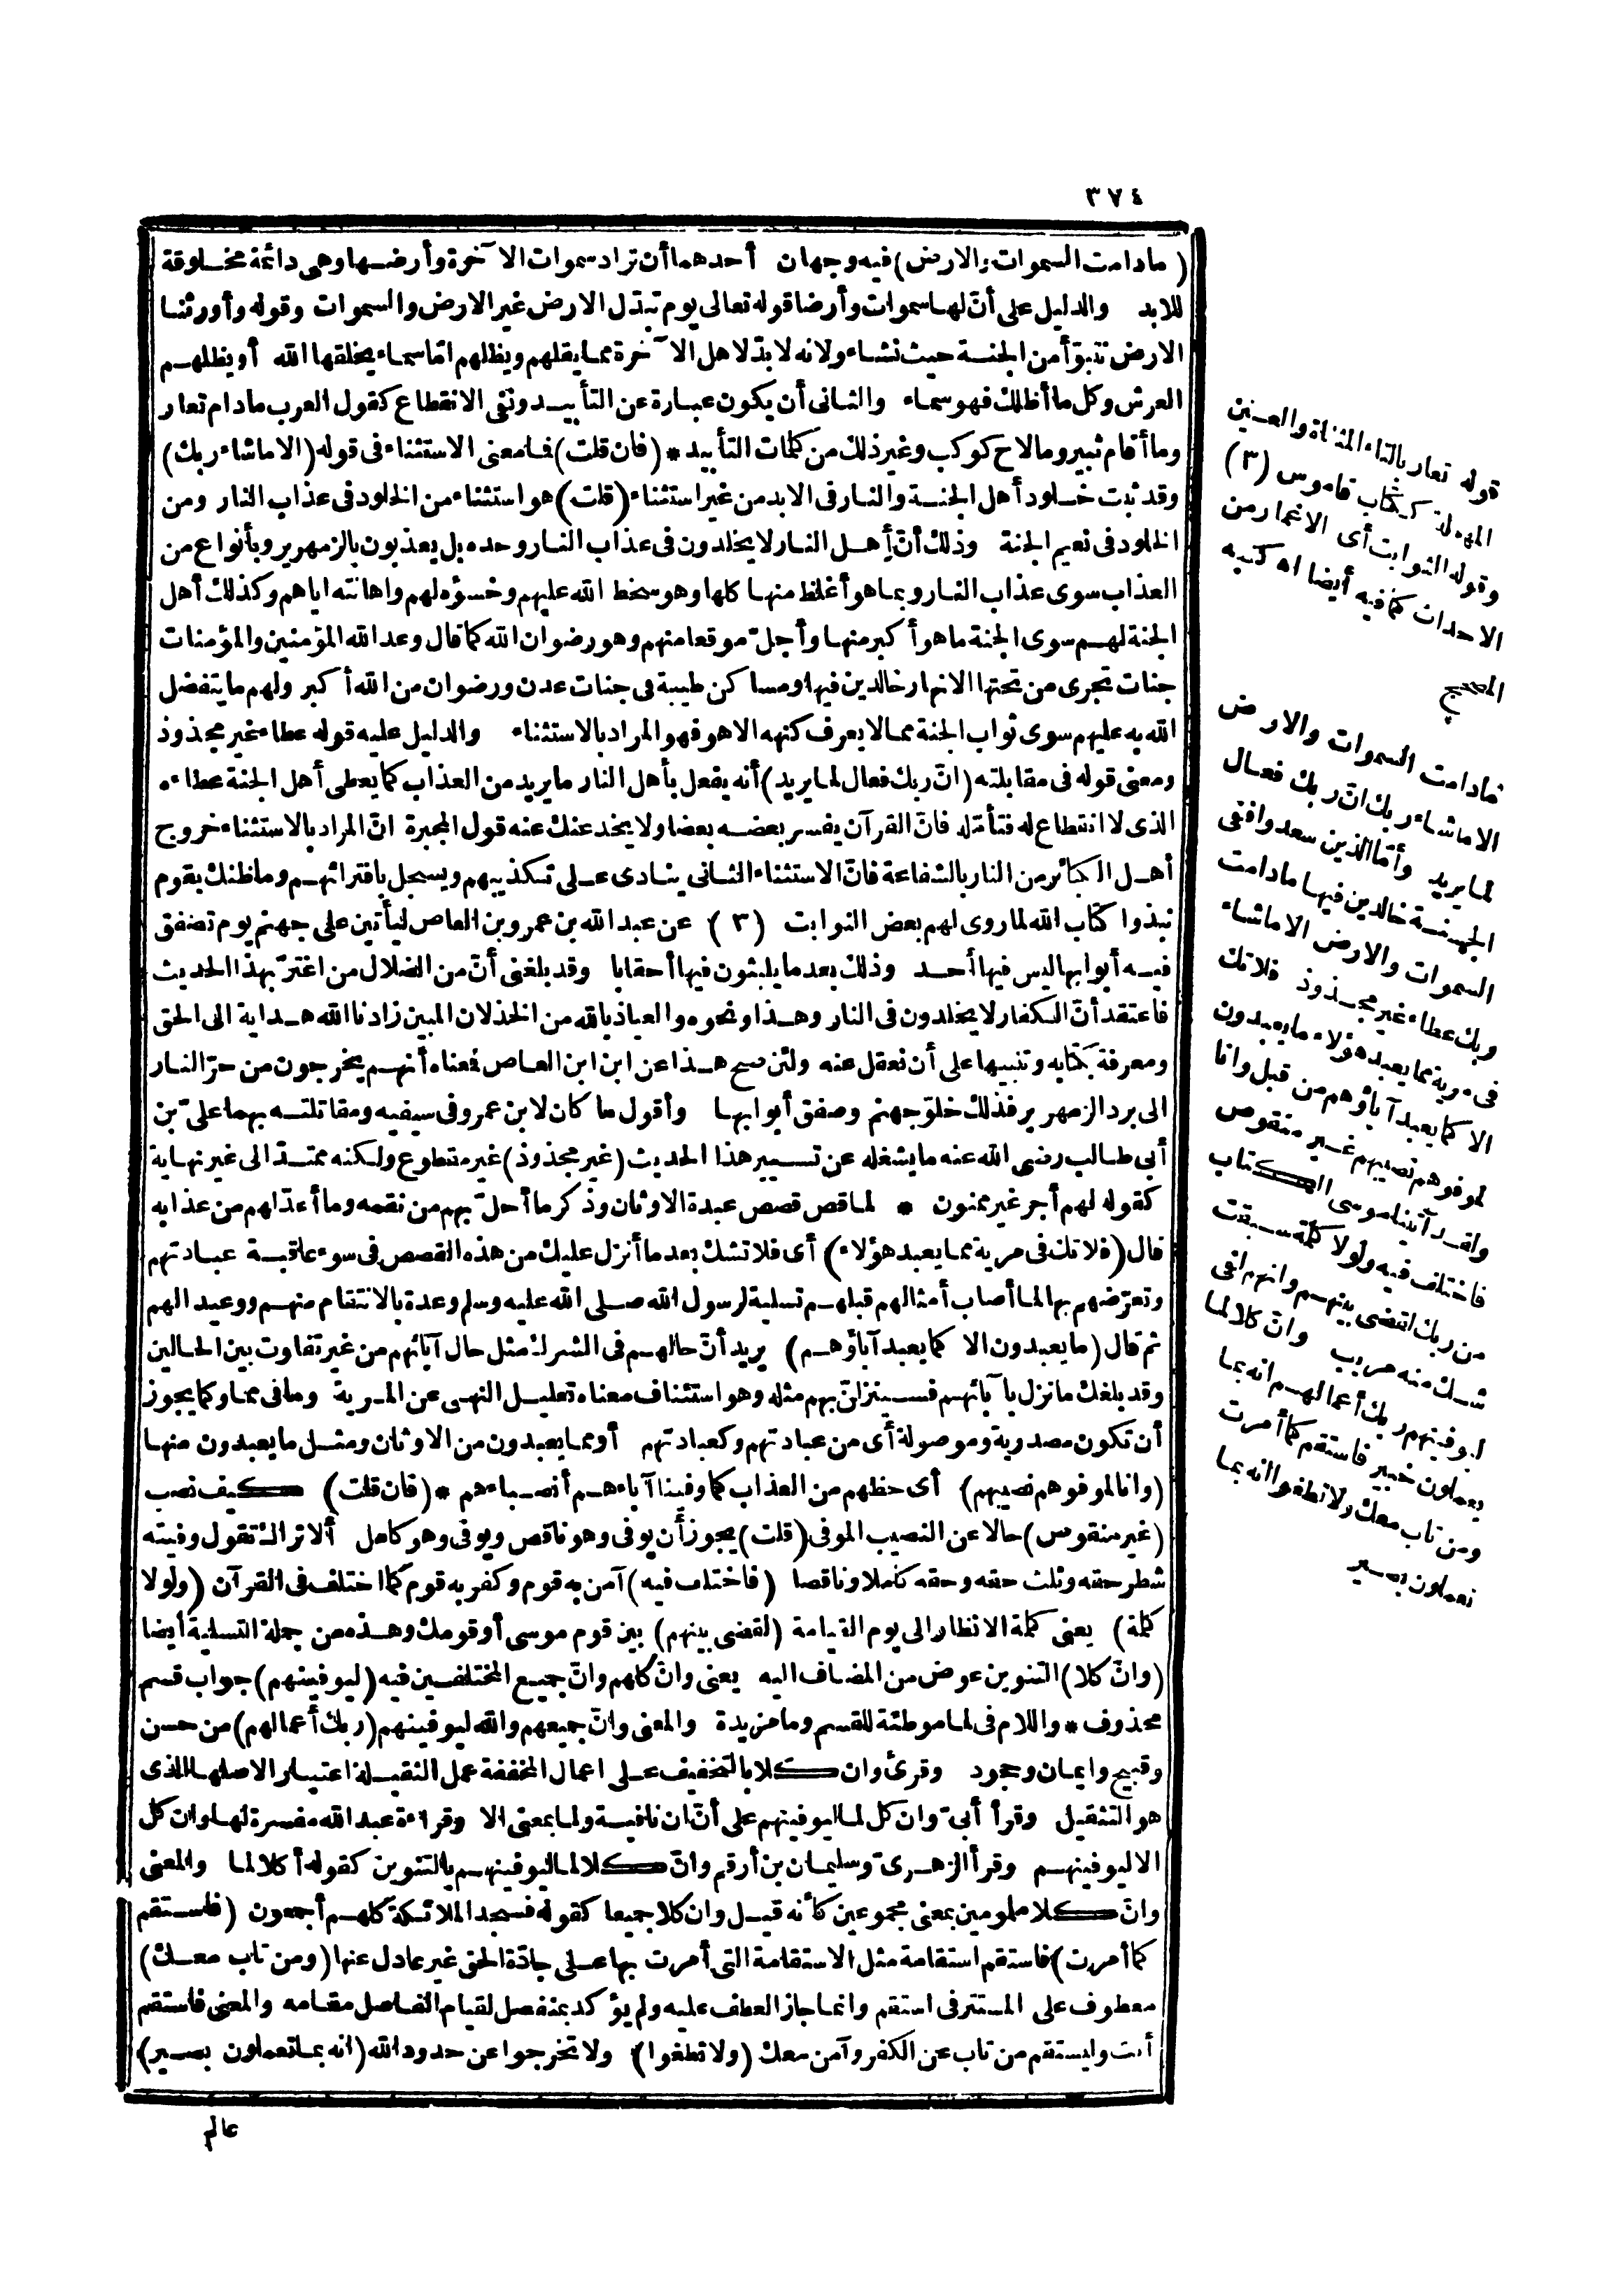 ٣٧٤
(مادامت السموات والارض) فيه وجهان أحدهما أن تراد سموات الآخرة وأرضها وهى دائمة مخلوقة
للابد والدليل على أنّ لها سموات وأرضا قوله تعالى يوم تبدّل الارض غير الارض والسموات وقوله وأورثنا
الارض نتبوّأ من الجنة حيث نشاء ولانه لابدّ لاهل الآخرة مما يقلهم ويظلهم امّا سماء يخلقها الله أو يظلهم
العرش وكل ما أظلك فهو سماء والثانى أن يكون عبارة عن التأبيد ونفى الانقطاع كقول العرب مادام تعار
وما أقام ثبير وما لاح كوكب وغير ذلك من كلمات التأبيد * (فان قلت) فما معنى الاستثناء فى قوله (الا ماشاء ربك)
وقد ثبت خلود أهل الجنة والنار فى الابد من غير استثناء (قلت) هو استثناء من الخلود فى عذاب النار ومن
الخلود فى نعيم الجنة وذلك أنّ أهل النار لا يخلدون فى عذاب النار وحده بل يعذبون بالزمهرير وبأنواع من
العذاب سوى عذاب النار وبما هو أغلظ منها كلها وهو سخط الله عليهم وخسؤه لهم واهانته اياهم وكذلك أهل
الجنة لهم سوى الجنة ما هو أكبر منها وأجلّ موقعا منهم وهو رضوان الله كما قال وعد الله المؤمنين والمؤمنات
جنات تجرى من تحتها الانهار خالدين فيها ومساكن طيبة فى جنات عدن ورضوان من الله أكبر ولهم ما يتفضل
الله به عليهم سوى ثواب الجنة مما لا يعرف كنهه الا هو فهو المراد بالاستثناء والدليل عليه قوله عطاء غير مجذوذ
ومعنى قوله فى مقابلته (انّ ربك فعال لما يريد) أنه يفعل بأهل النار ما يريد من العذاب كما يعطى أهل الجنة عطاءه
الذى لا انقطاع له فتأمّله فانّ القرآن يفسر بعضه بعضا ولا يخدعنك عنه قول المجبرة انّ المراد بالاستثناء خروج
أهل الكبائر من النار بالشفاعة فانّ الاستثناء الثانى ينادى على تكذيبهم ويسجل بافترائهم وما ظنك بقوم
نبذوا كتاب الله لما روى لهم بعض النوابت (٣) عن عبد الله بن عمرو بن العاص ليأتين على جهنم يوم تصفق
فيه أبوابها ليس فيها أحد وذلك بعد ما يلبثون فيها أحقابا وقد بلغنى أنّ من الضلال من اغترّ بهذا الحديث
فاعتقد أنّ الكفار لا يخلدون فى النار وهذا ونحوه والعياذ بالله من الخذلان المبين زادنا الله هداية الى الحق
ومعرفة بكتابه وتنبيها على أن نعقل عنه ولئن صح هذا عن ابن ابن العاص فمعناه أنهم يخرجون من حرّ النار
الى برد الزمهرير فذلك خلوّ جهنم وصفق أبوابها وأقول ما كان لابن عمرو فى سيفيه ومقاتلته بهما علىّ بن
أبى طالب رضى الله عنه ما يشغله عن تسيير هذا الحديث (غير مجذوذ) غير مقطوع ولكنه ممتدّ الى غير نهاية
كقوله لهم أجر غير ممنون * لما قص قصص عبدة الاوثان وذكر ما أحلّ بهم من نقمه وما أعدّ لهم من عذابه
قال (فلا تك فى مرية مما يعبد هؤلاء) أى فلا تشك بعد ما أنزل عليك من هذه القصص فى سوء عاقبة عبادتهم
وتعرّضهم بها لما أصاب أمثالهم قبلهم تسلية لرسول الله صلى الله عليه وسلم وعدة بالانتقام منهم ووعيدا لهم
ثم قال (ما يعبدون الا كما يعبد آباؤهم) يريد أنّ حالهم فى الشرك مثل حال آبائهم من غير تفاوت بين الحالين
وقد بلغك ما نزل بآبائهم فسينزلنّ بهم مثله وهو استئناف معناه تعليل النهى عن المرية وما فى مما وكما يجوز
أن تكون مصدرية وموصولة أى من عبادتهم وكعبادتهم أو مما يعبدون من الاوثان ومثل ما يعبدون منها
(وانا لموفوهم نصيبهم) أى حظهم من العذاب كما وفينا آباءهم أنصباءهم * (فان قلت) كيف نصب
(غير منقوص) حالا عن النصيب الموفى (قلت) يجوز أن يوفى وهو ناقص ويوفى وهو كامل ألا تراك تقول وفيته
شطر حقه وثلث حقه وحقه كاملا وناقصا (فاختلف فيه) آمن به قوم وكفر به قوم كما اختلف فى القرآن (ولولا
كلمة) يعنى كلمة الانظار الى يوم القيامة (لقضى بينهم) بين قوم موسى أو قومك وهذه من جملة التسلية أيضا
(وانّ كلا) التنوين عوض من المضاف اليه يعنى وانّ كلهم وانّ جميع المختلفين فيه (ليوفينهم) جواب قسم
محذوف * واللام فى لما موطئة للقسم وما مزيدة والمعنى وانّ جميعهم والله ليوفينهم (ربك أعمالهم) من حسن
وقبيح وايمان وجحود وقرئ وان كلا بالتخفيف على اعمال المخففة عمل الثقيلة اعتبارا لاصلها الذى
هو التثقيل وقرأ أبىّ وان كل لما ليوفينهم على أنّ ان نافية ولما بمعنى الا وقراءة عبد الله مفسرة لها وان كل
الا ليوفينهم وقرأ الزهرىّ وسليمان بن أرقم وانّ كلا لما ليوفينهم بالتنوين كقوله أكلا لما والمعنى
وانّ كلا ملمومين بمعنى مجموعين كأنه قيل وان كلا جميعا كقوله فسجد الملائكة كلهم أجمعون (فاستقم
كما أمرت) فاستقم استقامة مثل الاستقامة التى أمرت بها على جادّة الحق غير عادل عنها (ومن تاب معك)
معطوف على المستتر فى استقم وانما جاز العطف عليه ولم يؤكد بمنفصل لقيام الفاصل مقامه والمعنى فاستقم
أنت وليستقم من تاب عن الكفر وآمن معك (ولا تطغوا) ولا تخرجوا عن حدود الله (انه بما تعملون بصير)
عالم
قوله تعار بالتاء المثناة والعين
المهملة ككتاب قاموس (٣)
وقوله النوابت أى الاغمار من
الاحداث كما فيه أيضا اه كتبه
المصحح
مادامت السموات والارض
الا ماشاء ربك انّ ربك فعال
لما يريد وأمّا الذين سعدوا ففى
الجنة خالدين فيها مادامت
السموات والارض الا ماشاء
ربك عطاء غير مجذوذ فلا تك
فى مرية مما يعبد هؤلاء ما يعبدون
الا كما يعبد آباؤهم من قبل وانا
لموفوهم نصيبهم غير منقوص
ولقد آتينا موسى الكتاب
فاختلف فيه ولولا كلمة سبقت
من ربك لقضى بينهم وانهم لفى
شك منه مريب وانّ كلا لما
ليوفينهم ربك أعمالهم انه بما
يعملون خبير فاستقم كما أمرت
ومن تاب معك ولا تطغوا انه بما
تعملون بصير